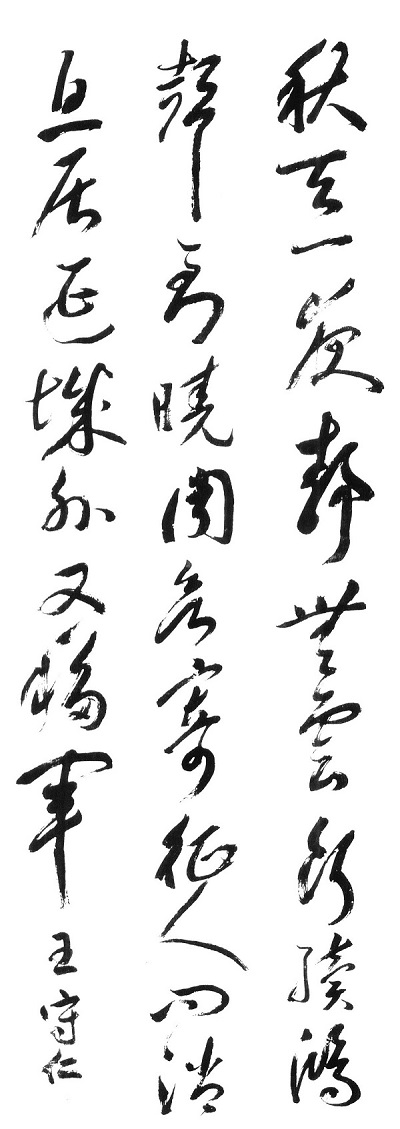 秋天一夜靜無雲斷續鴻
聲到曉聞欲寄征人問消
息居延城外又移軍王守仁